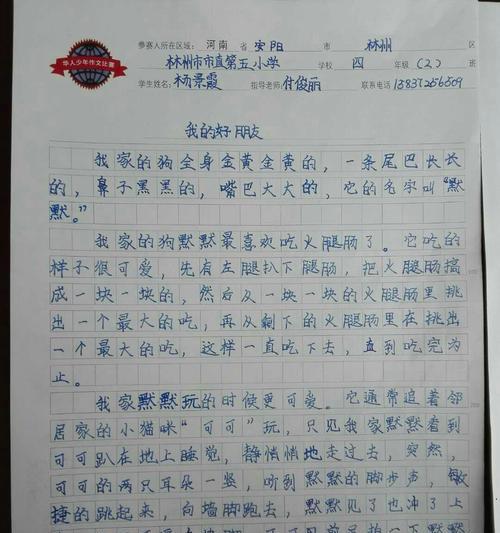 华人少年作文比赛
参赛人所在区域: 河南 省 安阳 市 林州 区
林州市市直第五小学 学校 四 年级(2)班
学生姓名: 杨景霞 指导老师: 付俊丽 联系电话: 13837256509
我的好朋友
我家的狗全身金黄金黄的，一条尾巴长长
的，鼻子黑黑的，嘴巴大大的，它的名字叫“默
默。”
我家的狗默默最喜欢吃火腿肠了。它吃的
样子很可爱，先有左腿扒下腿肠，把火腿肠搞
成一块一块的，然后从一块一块的火腿肠里挑
出一个最大的吃，再从剩下的火腿肠里在挑出
一个最大的吃，这样一直吃下去，直到吃完为
止。
我家默默玩的时候更可爱。它通常追着邻
居家的小猫咪“可可”玩，只见我家默默看到
可可趴在地上睡觉，静悄悄地走过去，突然，
可可的两只耳朵一竖，听到默默的脚步声，敏
捷的跳起来，向墙脚跑去，默默见了也冲了上